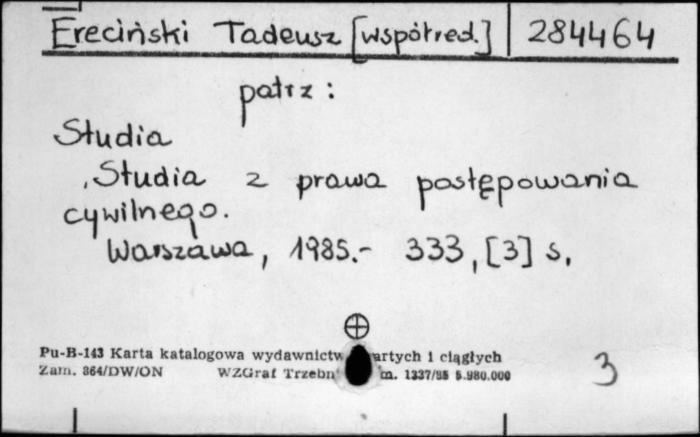 Ereciński Tadeusz [współred.] 284464
patrz:
Studia
Studia z prawa postępowania
cywilnego.
Warszawa, 1985.- 333, [3] s.
Pu-B-143 Karta katalogowa wydawnictw artych i ciągłych
Zam. 864/DW/ON WZGraf Trzebn m. 1337/85 5.980.000
3